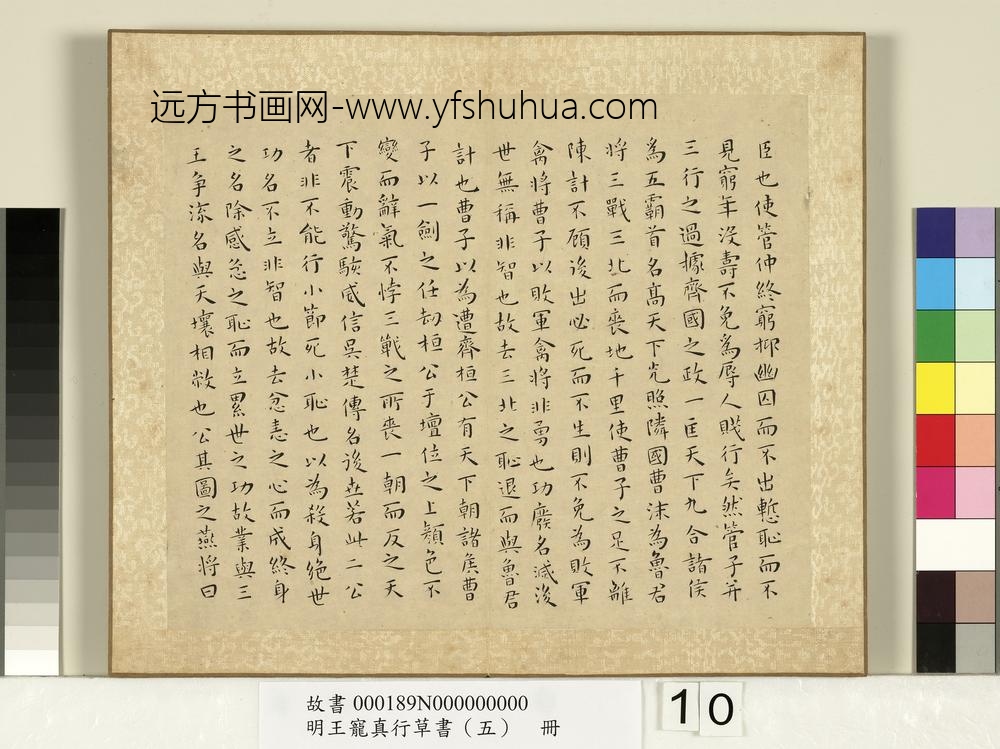 远方书画网-www.yfshuhua.com
臣也使管仲終窮抑幽囚而不出慙恥而不
見窮年没壽不免為辱人賤行矣然管子并
三行之過據齊國之政一匡天下九合諸侯
為五霸首名髙天下光照隣國曹沫為魯君
将三戰三北而喪地千里使曹子之足不離
陳計不顧後出必死而不生則不免為敗軍
禽將曹子以敗軍禽將非勇也功廢名滅後
世無稱非智也故去三北之恥退而與魯君
計也曹子以為遭齊桓公有天下朝諸侯曹
子以一劍之任劫桓公于壇位之上顏色不
變而辭氣不悖三戰之所喪一朝而反之天
下震動驚駭威信吳楚傳名後世若此二公
者非不能行小節死小恥也以為殺身絶世
功名不立非智也故去忿恚之心而成終身
之名除感忿之恥而立累世之功故業與三
王争流名與天壤相敝也公其圖之燕將曰
故書 000189N000000000
明王寵真行草書（五） 冊
10